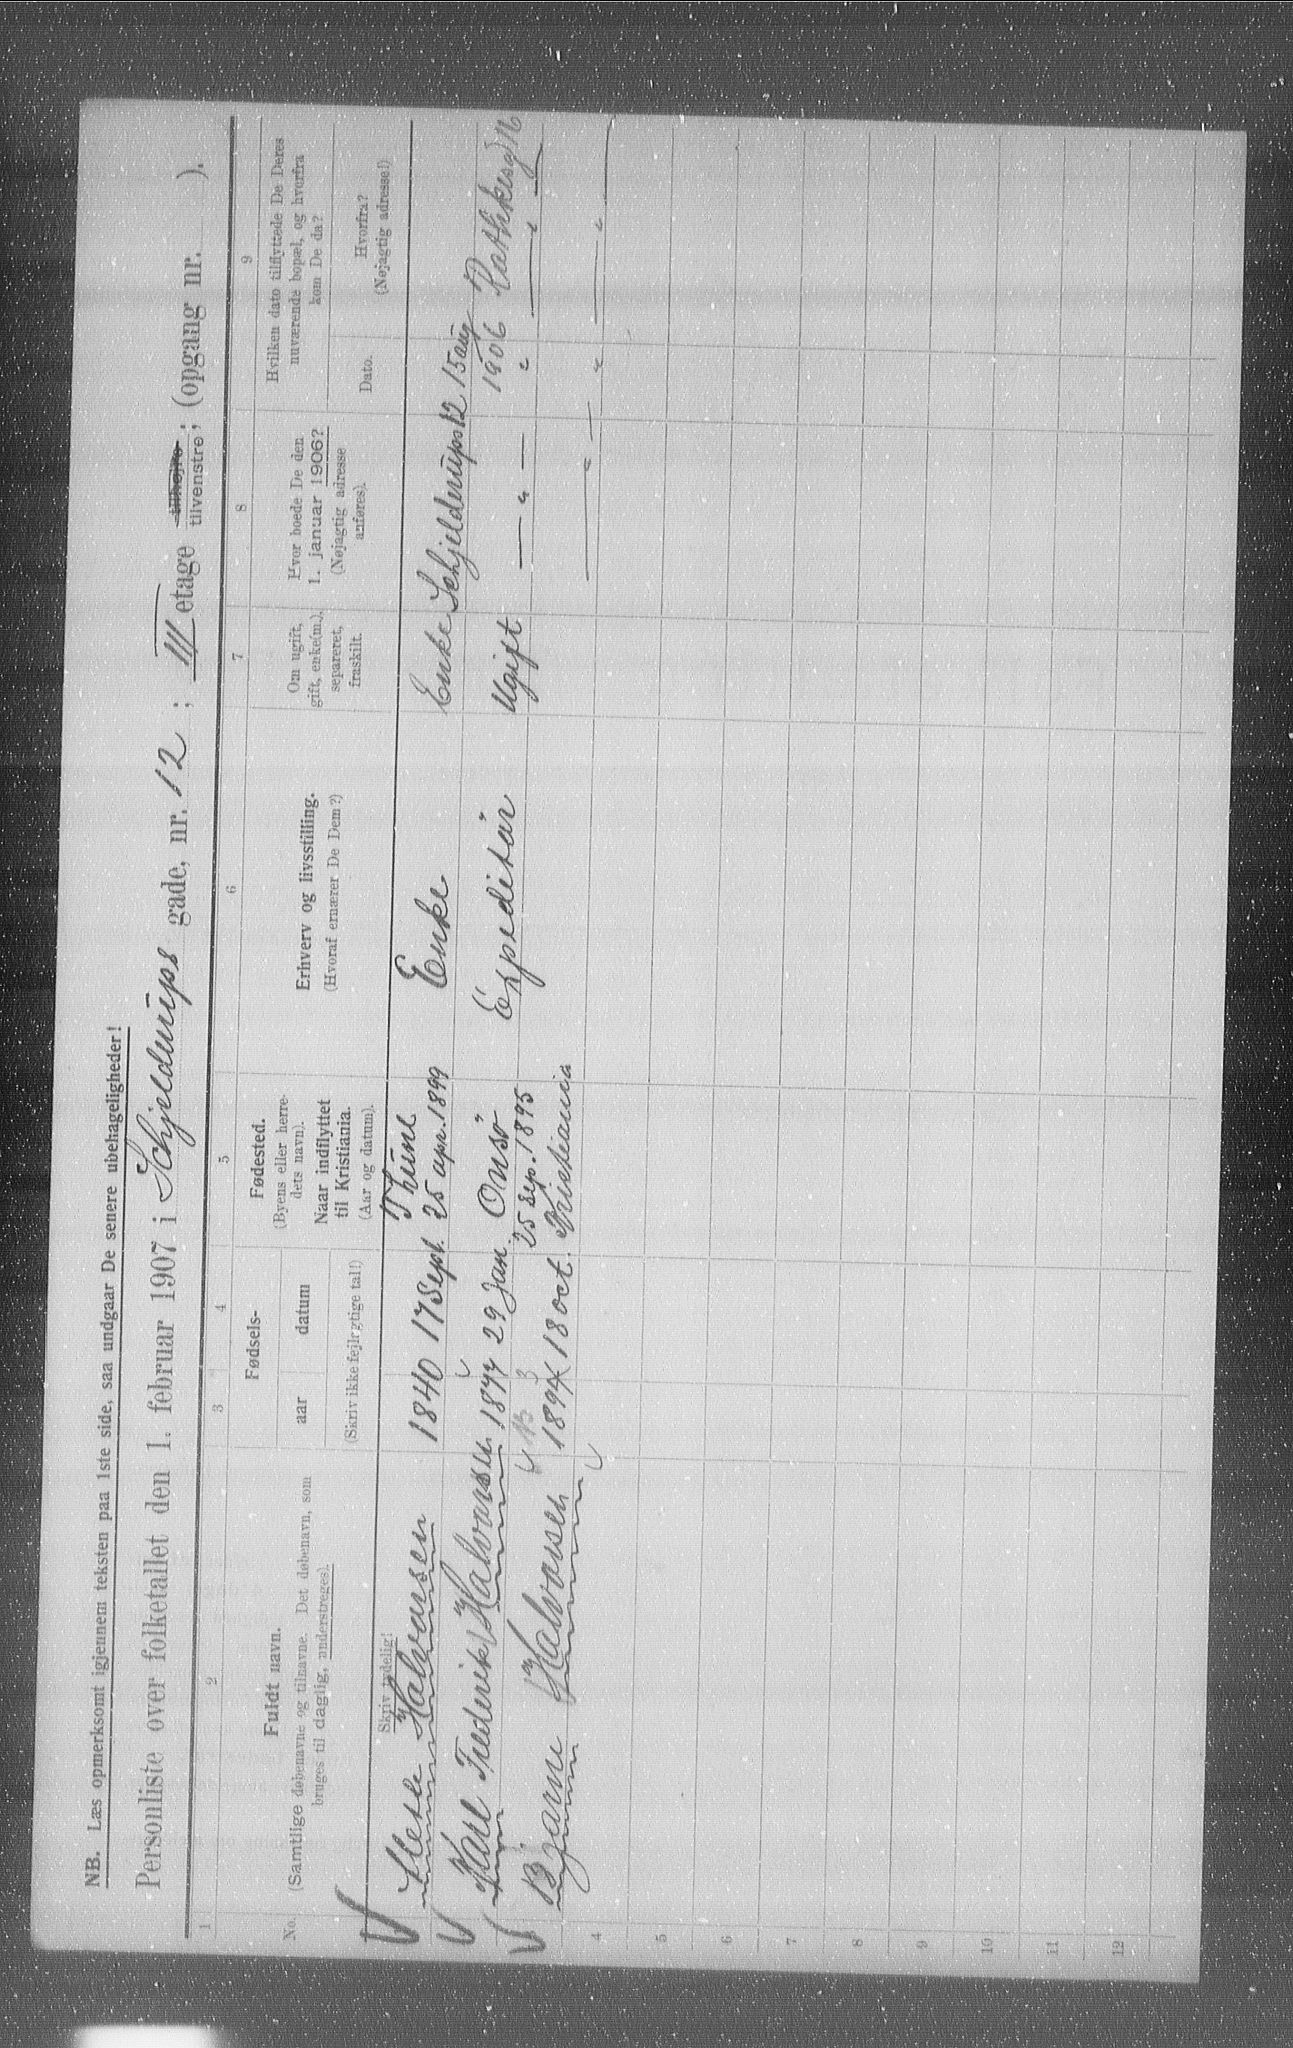 NB. Læs opmerksomt igjennem teksten paa 1ste side, saa undgaar De senere ubehageligheder!
Personliste over folketallet den 1. februar 1907 i Schjelderups gade, nr. 12 ; III etage tilhøjre tilvenstre; (opgang nr. ).
1 2 3 4 5 6 7 8 9
No. Fuldt navn. (Samtlige døbenavne og tilnavne. Det døbenavn, som bruges til daglig, understreges). Skriv tydelig!
Fødsels- aar datum (Skriv ikke fejlrgtige tal!)
Fødested. (Byens eller herredets navn). Naar indflyttet til Kristiania. (Aar og datum).
Erhverv og livsstilling. (Hvoraf ernærer De Dem?)
Om ugift, gift, enke(m.), separeret, fraskilt.
Hvor boede De den 1. januar 1906? (Nøjagtig adresse anføres).
Hvilken dato tilflyttede De Deres nuværende bopæl, og hvorfra kom De da? Dato. Hvorfra? (Nøjagtig adresse!)
Halvorsen 1840 17 Sept. Thune 25 apr. 1899 Enke Enke Schjelderups 12 15 aug 1906
Karl Frederik Halvorsen 1877 29 Jan. Onsö 25 Sep. 1895 Expeditör Ugift — " — "
Bjarne Halvorsen 1894 18 oct. Kristiania — " — " — " —
4
5
6
7
8
9
10
11
12